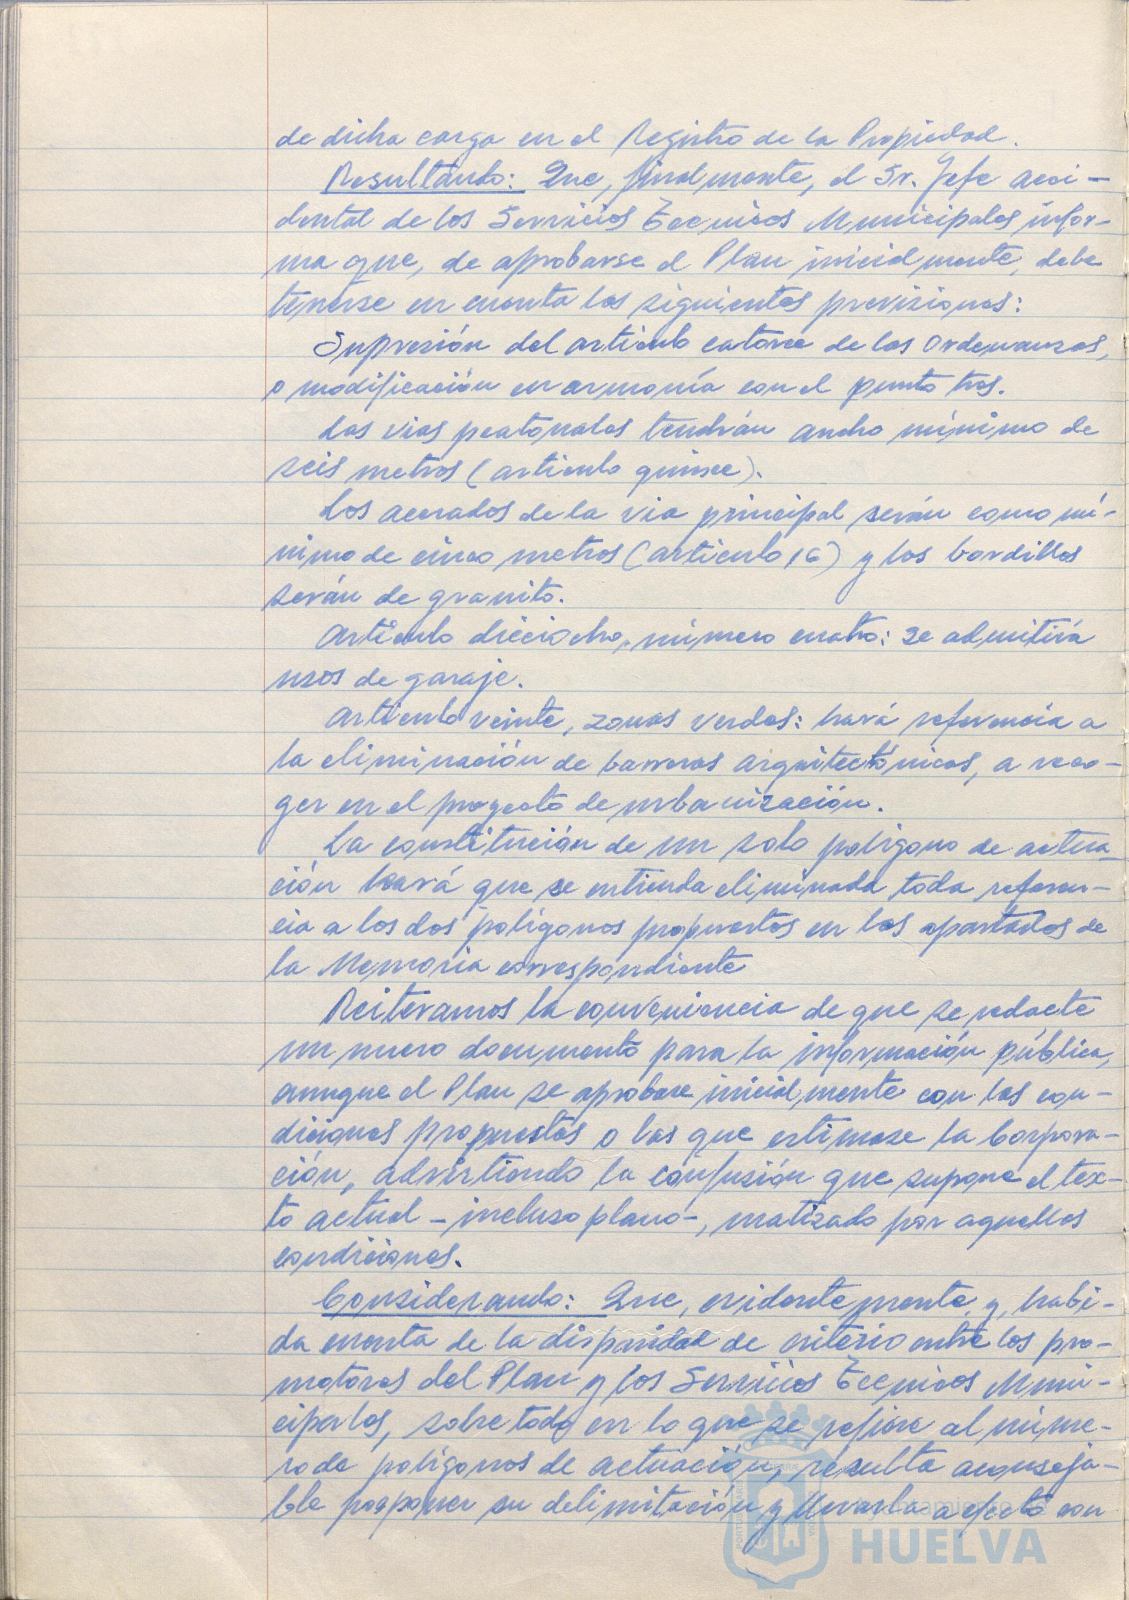 de dicha carga en el Registro de la Propiedad.
Resultando: Que, finalmente, el Sr. Jefe acci-
dental de los Servicios Técnicos Municipales infor-
ma que, de aprobarse el Plan inicialmente, debe
tenerse en cuenta las siguientes previsiones:
Supresión del artículo catorce de las Ordenanzas,
o modificación en armonía con el punto tres.
Las vias peatonales tendrán ancho mínimo de
seis metros (artículo quince).
Los acerados de la via principal serán como mí-
nimo de cinco metros (artículo 16) y los bordillos
serán de granito.
Artículo dieciocho, número cuatro: se admitirá
usos de garaje.
Artículo veinte, zonas verdes: hará referencia a
la eliminación de barreras arquitectónicas, a reco-
ger en el proyecto de urbanización.
La constitución de un solo polígono de actua-
ción hará que se entienda eliminada toda referen-
cia a los dos polígonos propuestos en los apartados de
la Memoria correspondiente
Reiteramos la conveniencia de que se redacte
un nuevo documento para la información pública,
aunque el Plan se aprobase inicialmente con las con-
diciones propuestas o las que estimase la Corpora-
ción, advirtiendo la confusión que supone el tex-
to actual - incluso plano -, matizado por aquellas
condiciones.
Considerando: Que, evidentemente, y, habi-
da cuenta de la disparidad de criterio entre los pro-
motores del Plan y los Servicios Técnicos Muni-
cipales, sobre todo en lo que se refiere al núme-
ro de polígonos de actuación, resulta aconseja-
ble posponer su delimitación y llevarla a efecto con
HUELVA